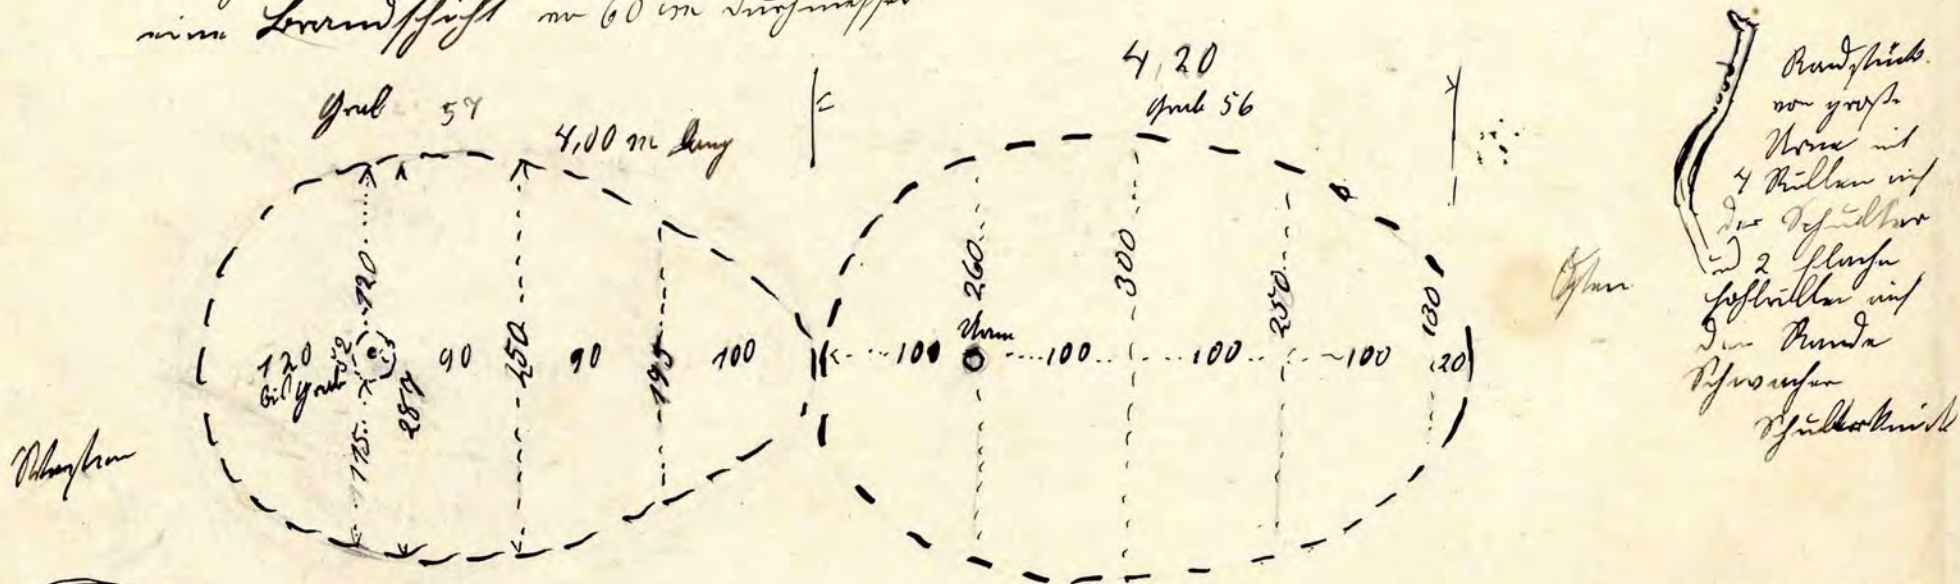 eine Brandschicht von 60 cm Durchmesser
4,20
Grab 57
Grab 56
4,00 m lang
120
175
120
bis Grab 52
287
90
250
90
195
100
100
Urne
260
100
300
100
250
100
130
20
Westen
Osten
Randstück
von große
Urne mit
4 Rillen auf
der Schulter
und 2 flache
Hohlrillen auf
dem Rande
Schwacher
Schulterknick